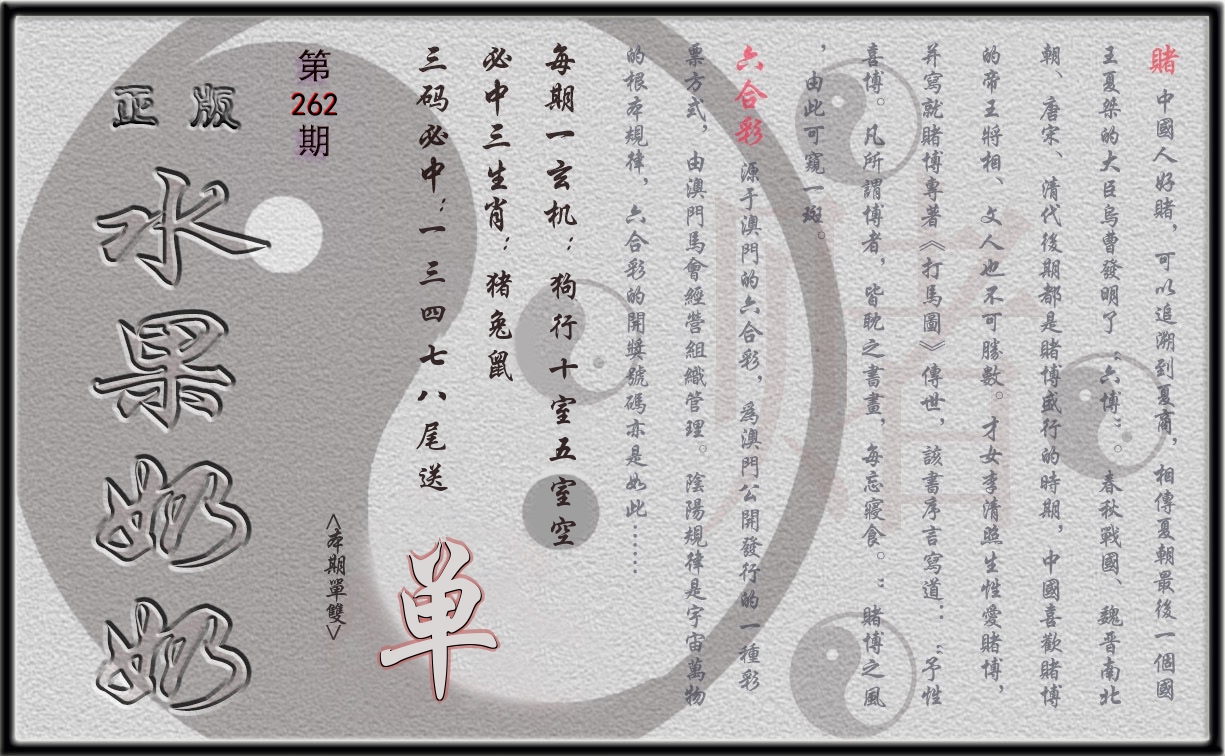 賭 中國人好賭，可以追溯到夏商，相傳夏朝最後一個國
王夏桀的大臣烏曹發明了“六博”。春秋戰國、魏晋南北
朝、唐宋、清代後期都是賭博盛行的時期，中國喜歡賭博
的帝王將相、文人也不可勝數。才女李清照生性愛賭博，
并寫就賭博專著《打馬圖》傳世，該書序言寫道：“予性
喜博。凡所謂博者，皆耽之晝晝，每忘寢食。”賭博之風
，由此可窺一斑。
六合彩 源于澳門的六合彩，爲澳門公開發行的一種彩
票方式，由澳門馬會經營組織管理。陰陽規律是宇宙萬物
的根本規律，六合彩的開獎號碼亦是如此……
每期一玄机：狗行十室五室空
必中三生肖：猪兔鼠
三码必中：一三四七八尾送
单
<本期單雙>
第
262
期
正版
水果奶奶
赌